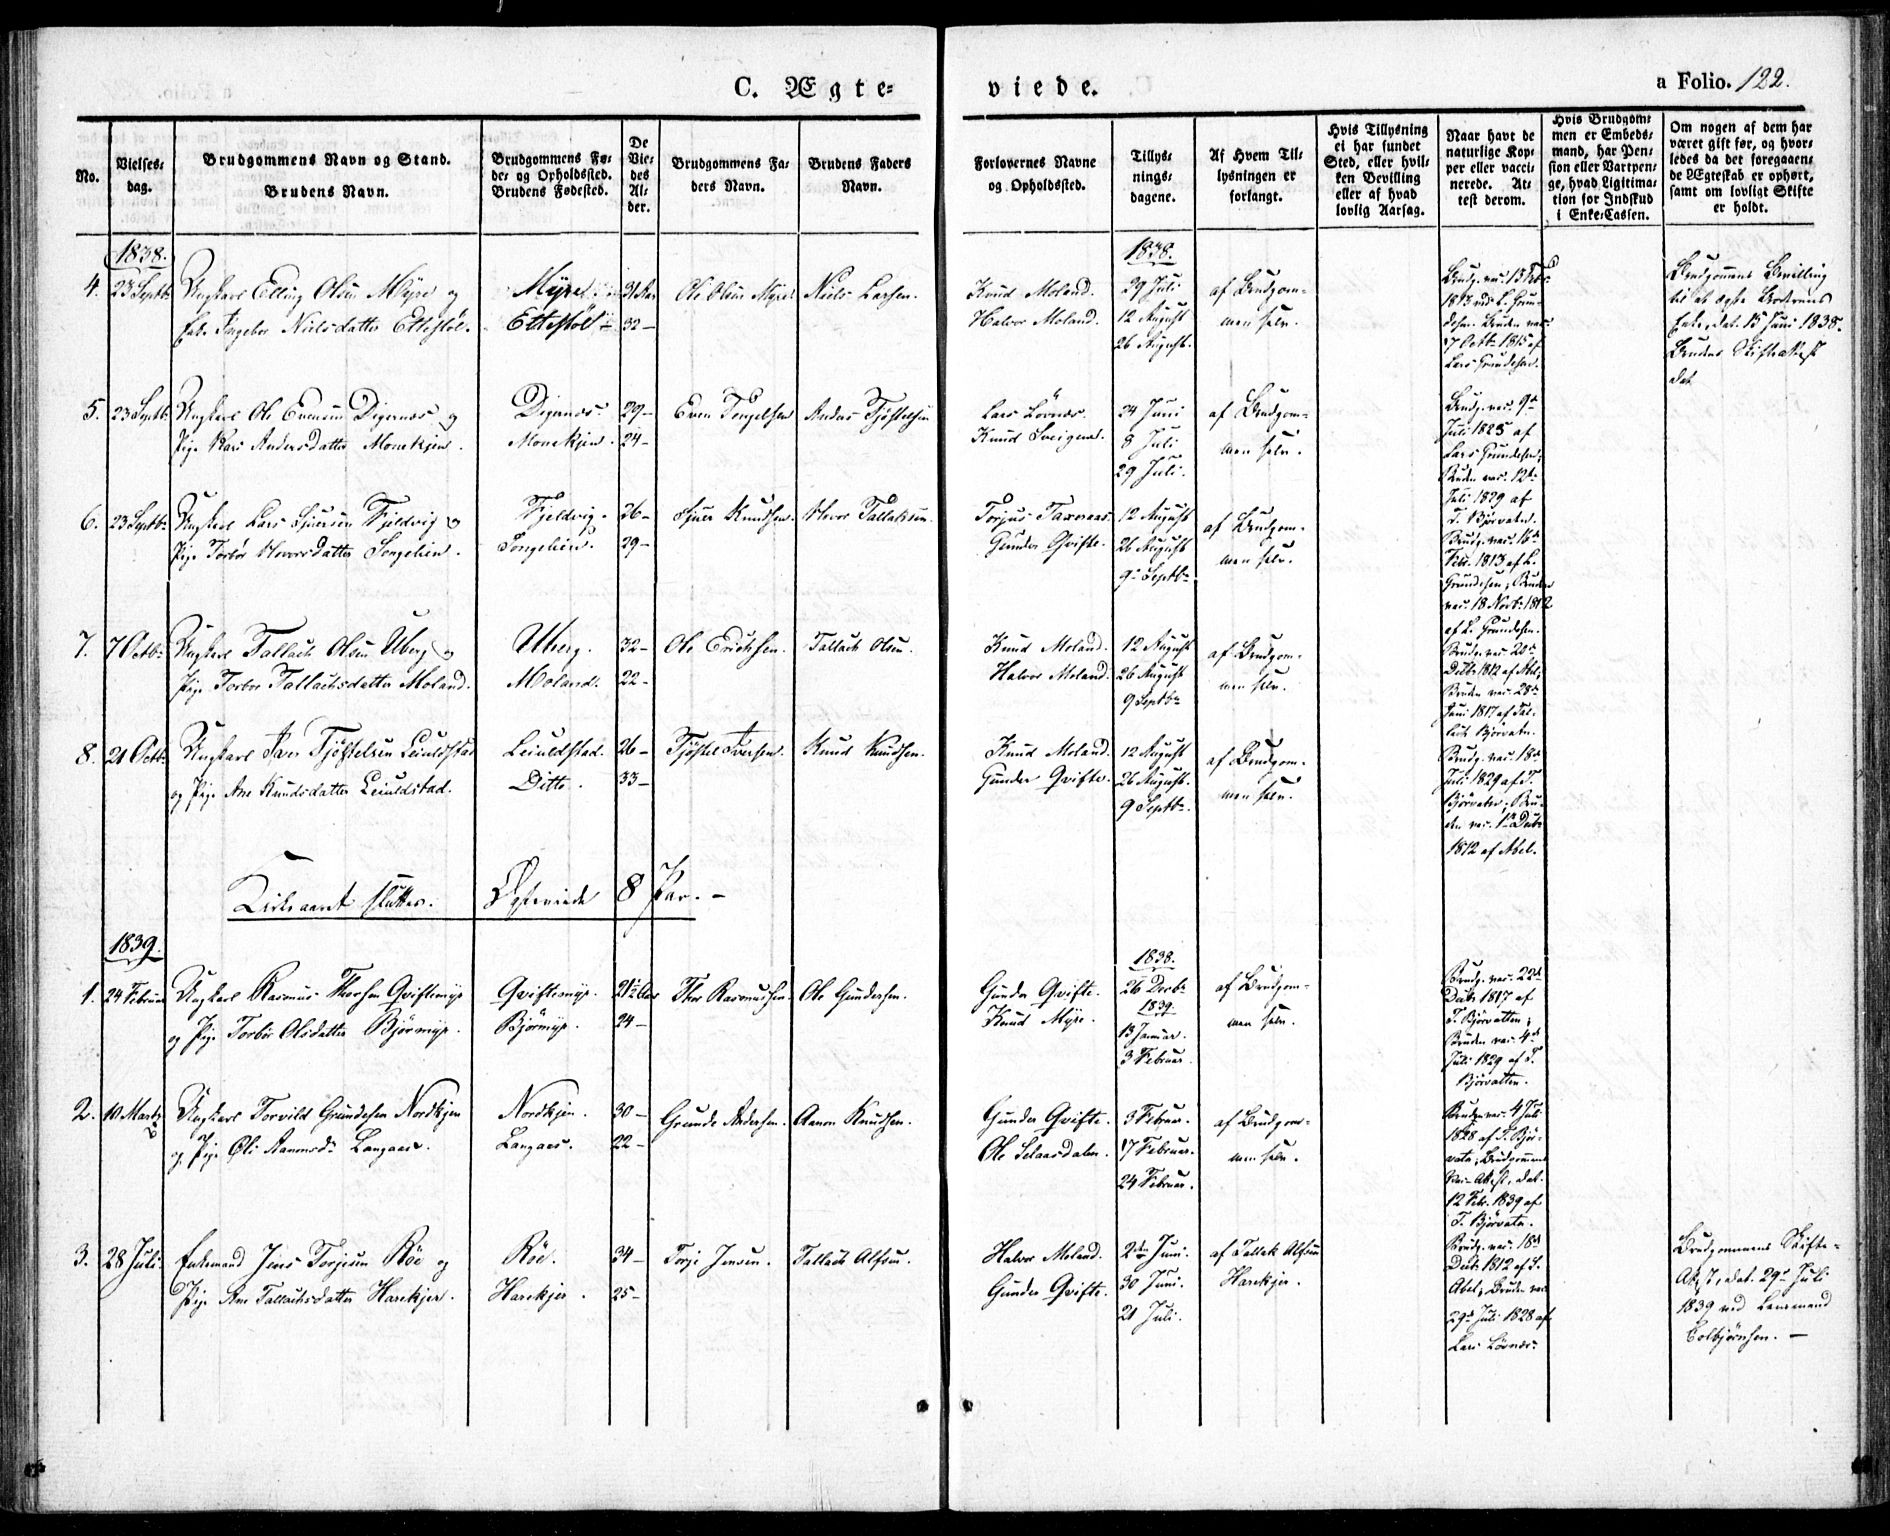 C. Ægte-
viede.
a Folio. 122.
No.
Vielses-
dag.
Brudgommens Navn og Stand.
Brudens Navn.
Brudgommens Fø-
de- og Opholdssted.
Brudens Fødested.
De
Vie-
des
Al-
der.
Brudgommens Fa-
ders Navn.
Brudens Faders
Navn.
Forlovernes Navne
og Opholdssted.
Tillys-
nings-
dagene.
Af Hvem Til-
lysningen er
forlangt.
Hvis Tillysning
ei har fundet
Sted, eller hvil-
ken Bevilling
eller af hvad
lovlig Aarsag.
Naar havt de
naturlige Kop-
per eller vacci-
nerede. At-
test derom.
Hvis Brudgom-
men er Embeds-
mand, har Pen-
sion eller Vartpen-
ge, hvad Ligitima-
tion for Indskud
i Enke-Cassen.
Om nogen af dem har
været gift før, og hvor-
ledes da det foregaaen-
de Ægteskab er ophørt,
samt om lovligt Skifte
er holdt.
1838.
4. 23 Septbr Ungkarl Elling Olsen Myre og
Enke Ingebor Nielsdatter Ettestøl.
Myre
Ettestøl
31 Aar
32 —
Ole Olsen Myre
Niels Larsen.
Knud Moland.
Halvor Moland.
1838.
29 Juli
12 August
26 August.
af Brudgom-
men selv.
Brudg. vac. 13 Febr.
1813 ved L. Grun-
desen. Bruden vac.
7 Octbr 1815 af
Lars Grundesen.
Brudgommens Bevilling
til at ægte Broderens
Enke, dat. 15 Juni 1838.
Brudens Skifteattest
dat.
5. 23 Septbr Ungkarl Ole Evensen Digernæs og
Pige Kari Andersdatter Monekjen.
Digernæs.
Monekjen.
29 —
24 —
Even Tengelsen
Anders Tjøstelsen
Lars Løvnæs.
Knud Sveigen.
24 Juni
8 Juli
29 Juli.
af Brudgom-
men selv.
Brudg. vac. 9de
Juli 1825 af
Lars Grundesen;
Bruden vac. 12te
Juli 1829 af
T. Bjørvatn.
6. 23 Septbr Ungkarl Lars Sjursen Fjeldvig og
Pige Torbør Hvorsdatter Songelien.
Fjeldvig.
Songelien.
26 —
29 —
Sjur Knudsen.
Hvor Tallaksen.
Torjus Taxeraas.
Gunder Qvifte.
12 August
26 August
9de Septbr
af Brudgom-
men selv.
Brudg. vac. 16de
Febr. 1813 af L.
Grundesen; Bruden
vac. 18 Novbr 1812
af L. Grundesen.
7. 7 Octbr Ungkarl Tallach Olsen Uberg og
Pige Torbor Tallachsdatter Moland.
Uberg.
Moland.
32 —
22 —
Ole Erichsen.
Tallach Olsen.
Knud Moland.
Halvor Moland.
12 August
26 August
9 Septbr
af Brudgom-
men selv.
Brudg. vac. 20de
Decbr 1812 af Abel;
Bruden vac. 28de
Juni 1817 af Tal-
lach Bjørvatn.
8. 21 Octbr Ungkarl Iver Tjøstelsen Leiuldstad
og Pige Ane Knudsdatter Leiuldstad.
Leiuldstad.
Ditto.
26 —
33 —
Tjøstel Iversen.
Knud Knudsen.
Knud Moland.
Gunder Qvifte.
12 August
26 August.
9 Septbr
af Brudgom-
men selv.
Brudg. vac. 18de
Juli 1829 af T.
Bjørvatn; Bru-
den vac. 1ste Decbr
1812 af Abel.
Kirkeaaret sluttes. Ægteviede 8 Par. —
1839.
1. 24 Februar Ungkarl Rasmus Thorsen Qviftemyr
og Pige Torbør Olsdatter Bjørmyr.
Qviftemyr.
Bjørmyr.
21½ Aar
24 —
Thor Rasmussen.
Ole Gundersen.
Gunder Qvifte.
Knud Myre.
1838.
26 Decbr
1839
13 Januar.
3 Februar.
af Brudgom-
men selv.
Brudg. vac. 22de
Decbr 1817 af
T. Bjørvatten;
Bruden vac. 4de
Juli 1829 af T.
Bjørvatten.
2. 10 Marts Ungkarl Torvild Grundesen Nordkjen
og Pige Oli Aanonsdr Langaas.
Nordkjen.
Langaas.
30 —
22 —
Grunde Andersen.
Aanon Knudsen.
Gunder Qvifte.
Ole Selaasdalen.
3 Februar.
17 Februar.
24 Februar.
af Brudgom-
men selv.
Bruden vac. 4 Juli
1828 af T. Bjør-
vatn; Brudgommens
Vac. Attest, dat.
12 Febr. 1839 af
T. Bjørvatn.
3. 28 Juli. Enkemand Jens Torjesen Røe og
Pige Ane Tallachsdatter Harekjer.
Røe.
Harekjer.
34 —
25 —
Torje Jensen.
Tallach Alfsen.
Halvor Moland.
Gunder Qvifte.
2den Juni.
30 Juni.
21 Juli.
af Tallak Alfsen
Harekjer.
Brudg. vac. 18de
Decbr 1812 af S.
Abel; Bruden vac.
29de Juli 1828 af
Lars Løvnæs.
Brudgommens Skifte-
Attest, dat. 29de Juli
1839 ved Lensmand
Colbjørnsen. —